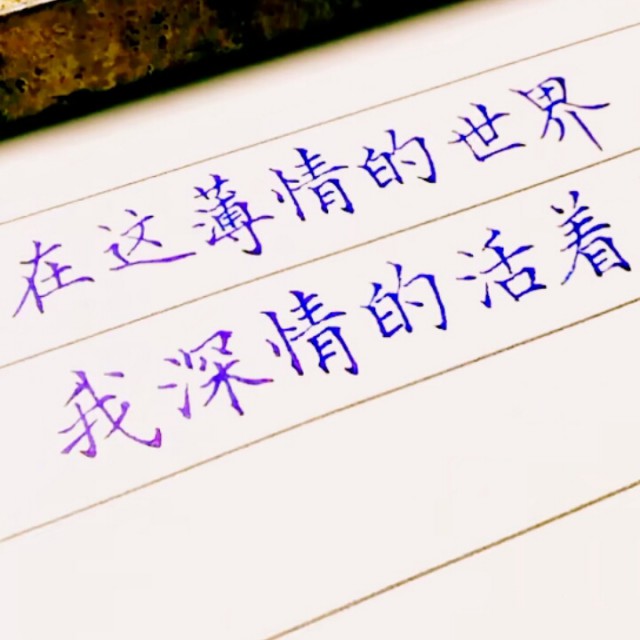 在这薄情的世界
我深情的活着